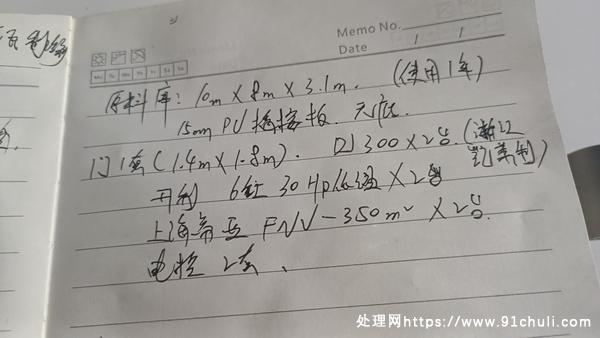 Memo No.
Date / /
Mo Tu We Th Fr Sa Su
原料库: 10m×8m×3.1m. (使用1年)
15cm PU 插接板. 无底.
门1套(1.4m×1.8m). DJ300×2台.(浙江
开利 6缸 30Hp低温×2台
上海 FNV-350m²×2台.
电控 2套、
处理网https://www.91chuli.com